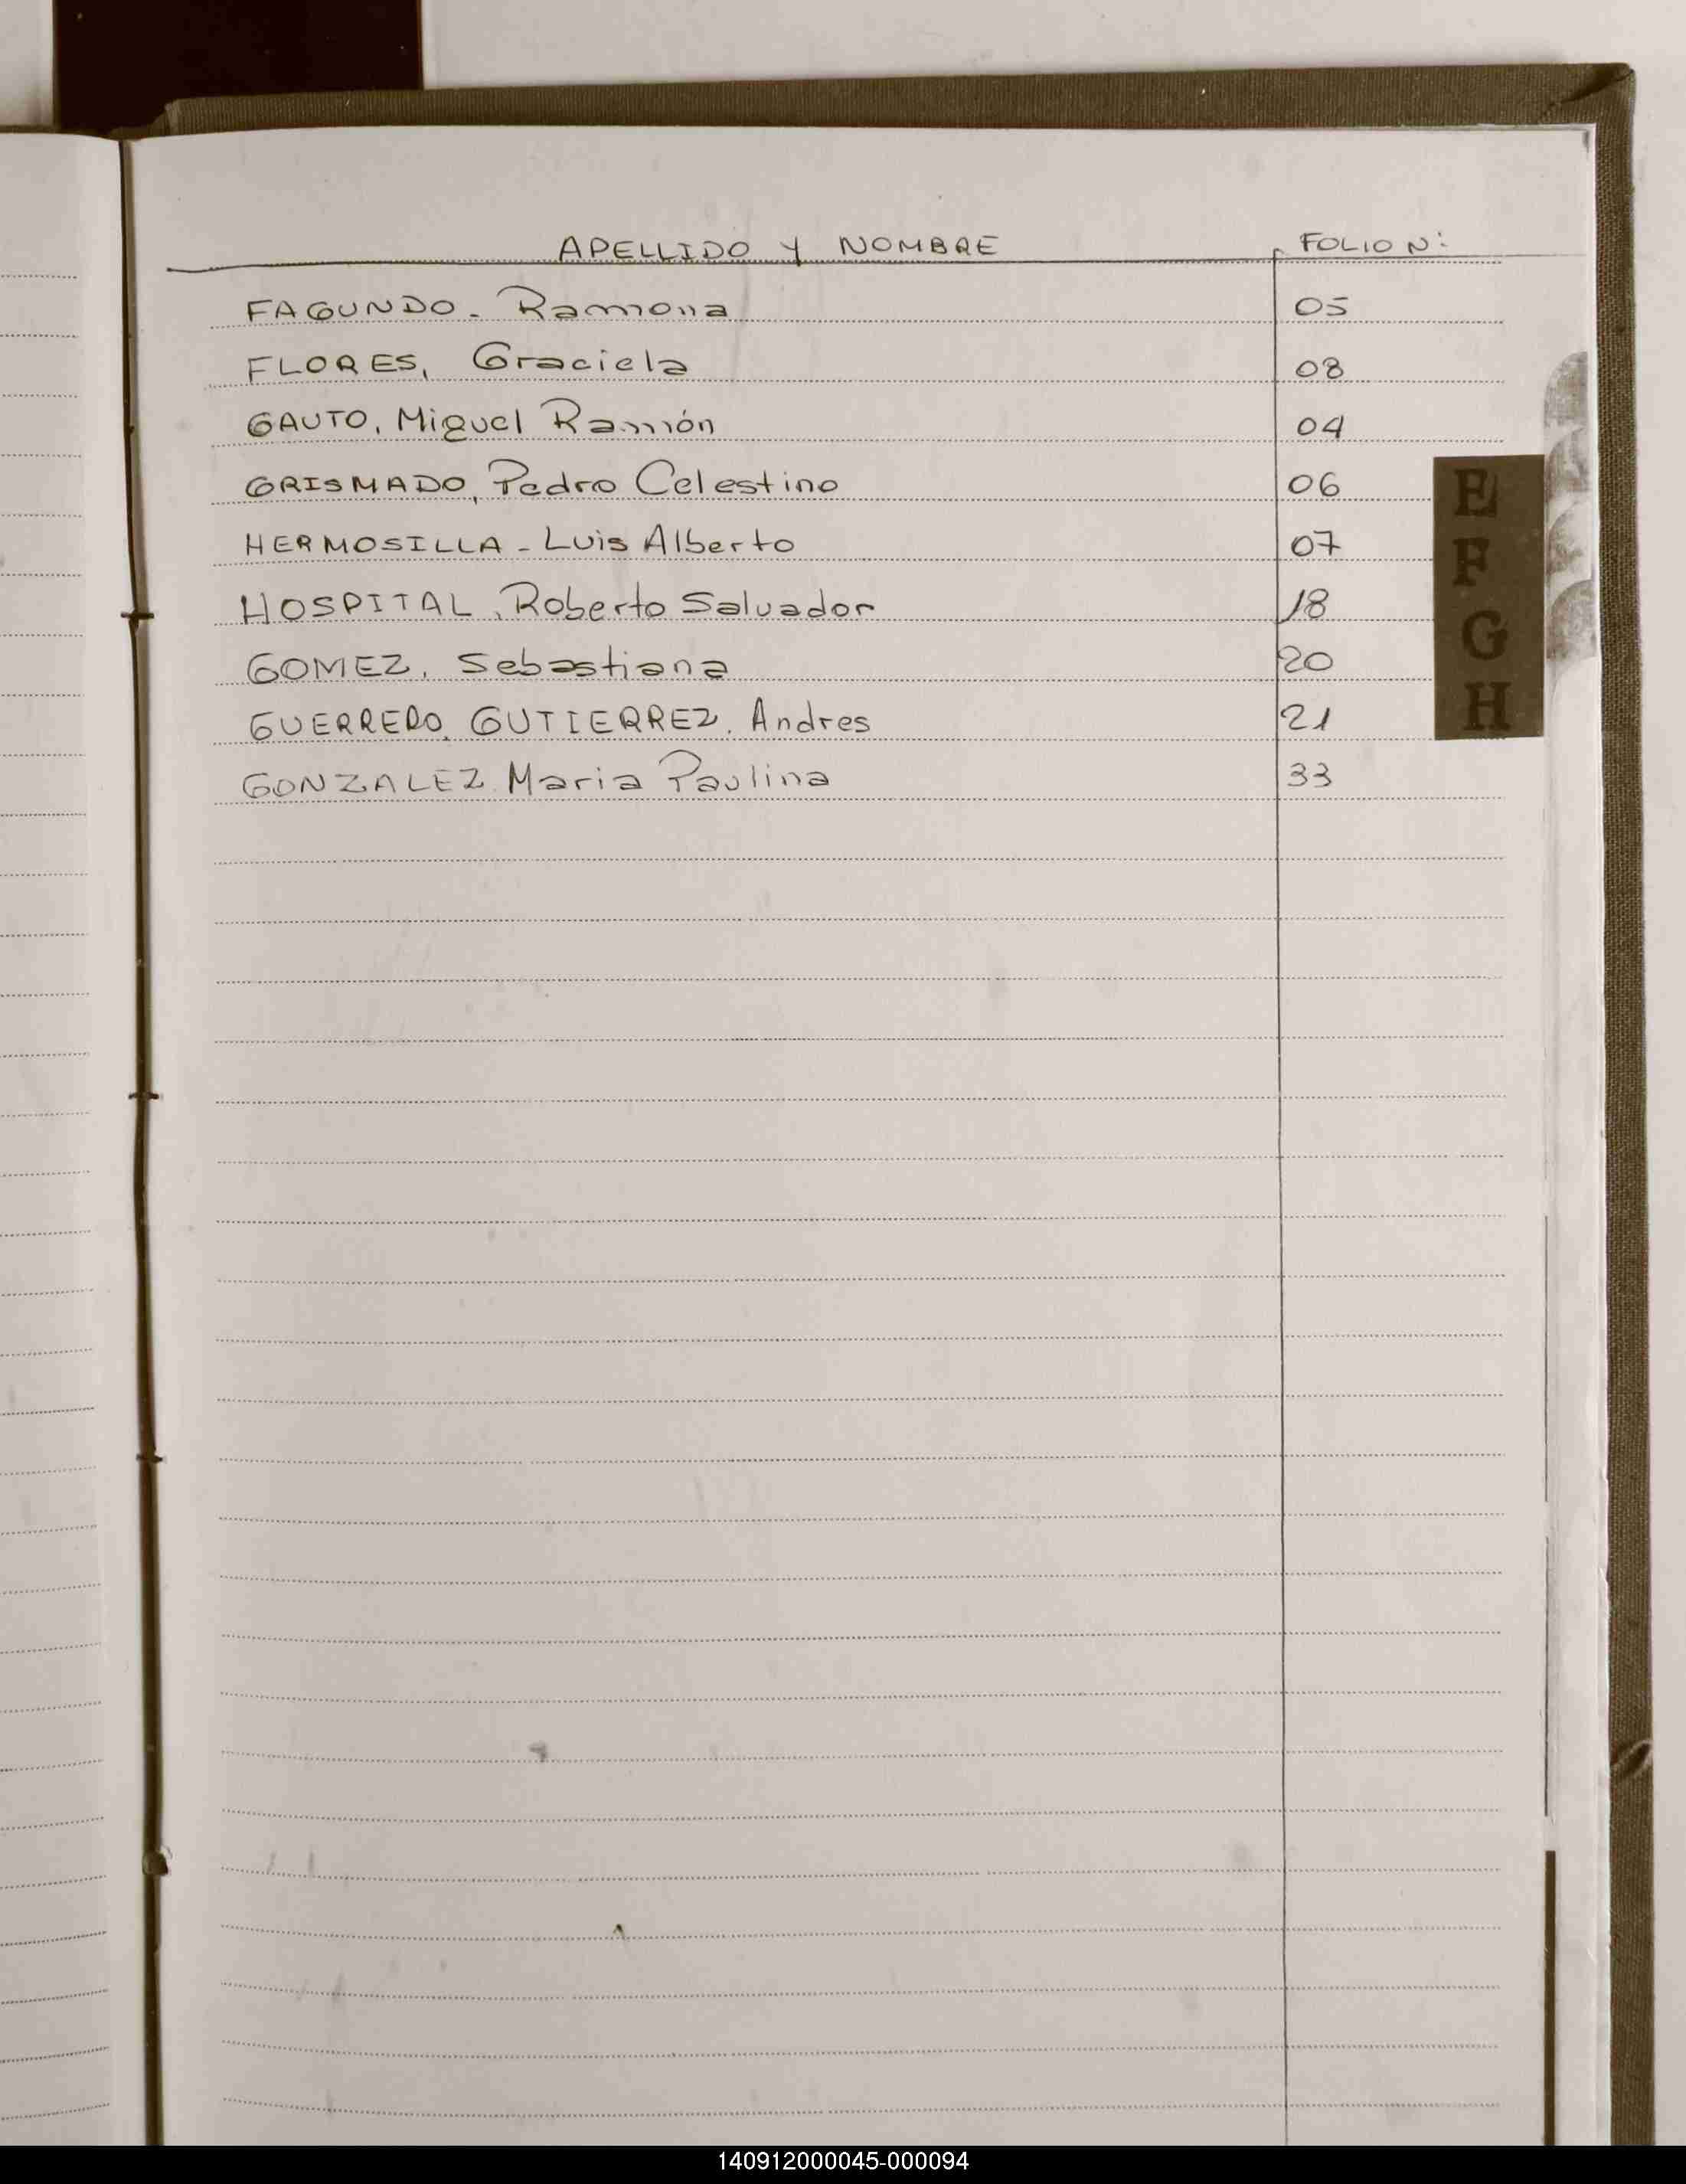 APELLIDO Y NOMBRE FOLIO N:
FAGUNDO - Ramona 05
FLORES, Graciela 08
GAUTO, Miguel Ramón 04
GRISMADO, Pedro Celestino 06
HERMOSILLA - Luis Alberto 07
HOSPITAL, Roberto Salvador 18
GOMEZ, Sebastiana 20
GUERRERO GUTIERREZ, Andres 21
GONZALEZ Maria Paulina 33
E
F
G
H
140912000045-000094